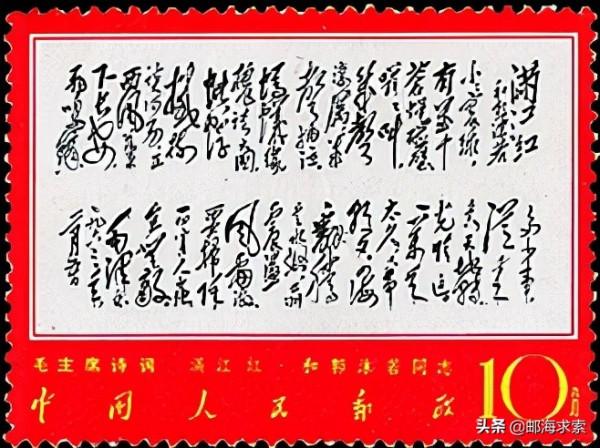 满江红
和郭沫若
小小寰球，
有几个
苍蝇碰壁。
嗡嗡叫，
几声
凄厉，几
声抽泣。
蚂蚁缘
槐夸大国，
蚍蜉
撼树
谈何易。正
西风落叶
下长安，
飞鸣镝。
多少事，
从来急；
天地转，
光阴迫。
一万年
太久，只争
朝夕。四海
翻腾
云水怒，五洲
震荡
风雷激。
要扫除
一切害人虫，
全无敌。
毛泽东
一九六三年
二月五日
毛主席诗词 满江红·和郭沫若同志
中国人民邮政 10分
头条 @邮海求索